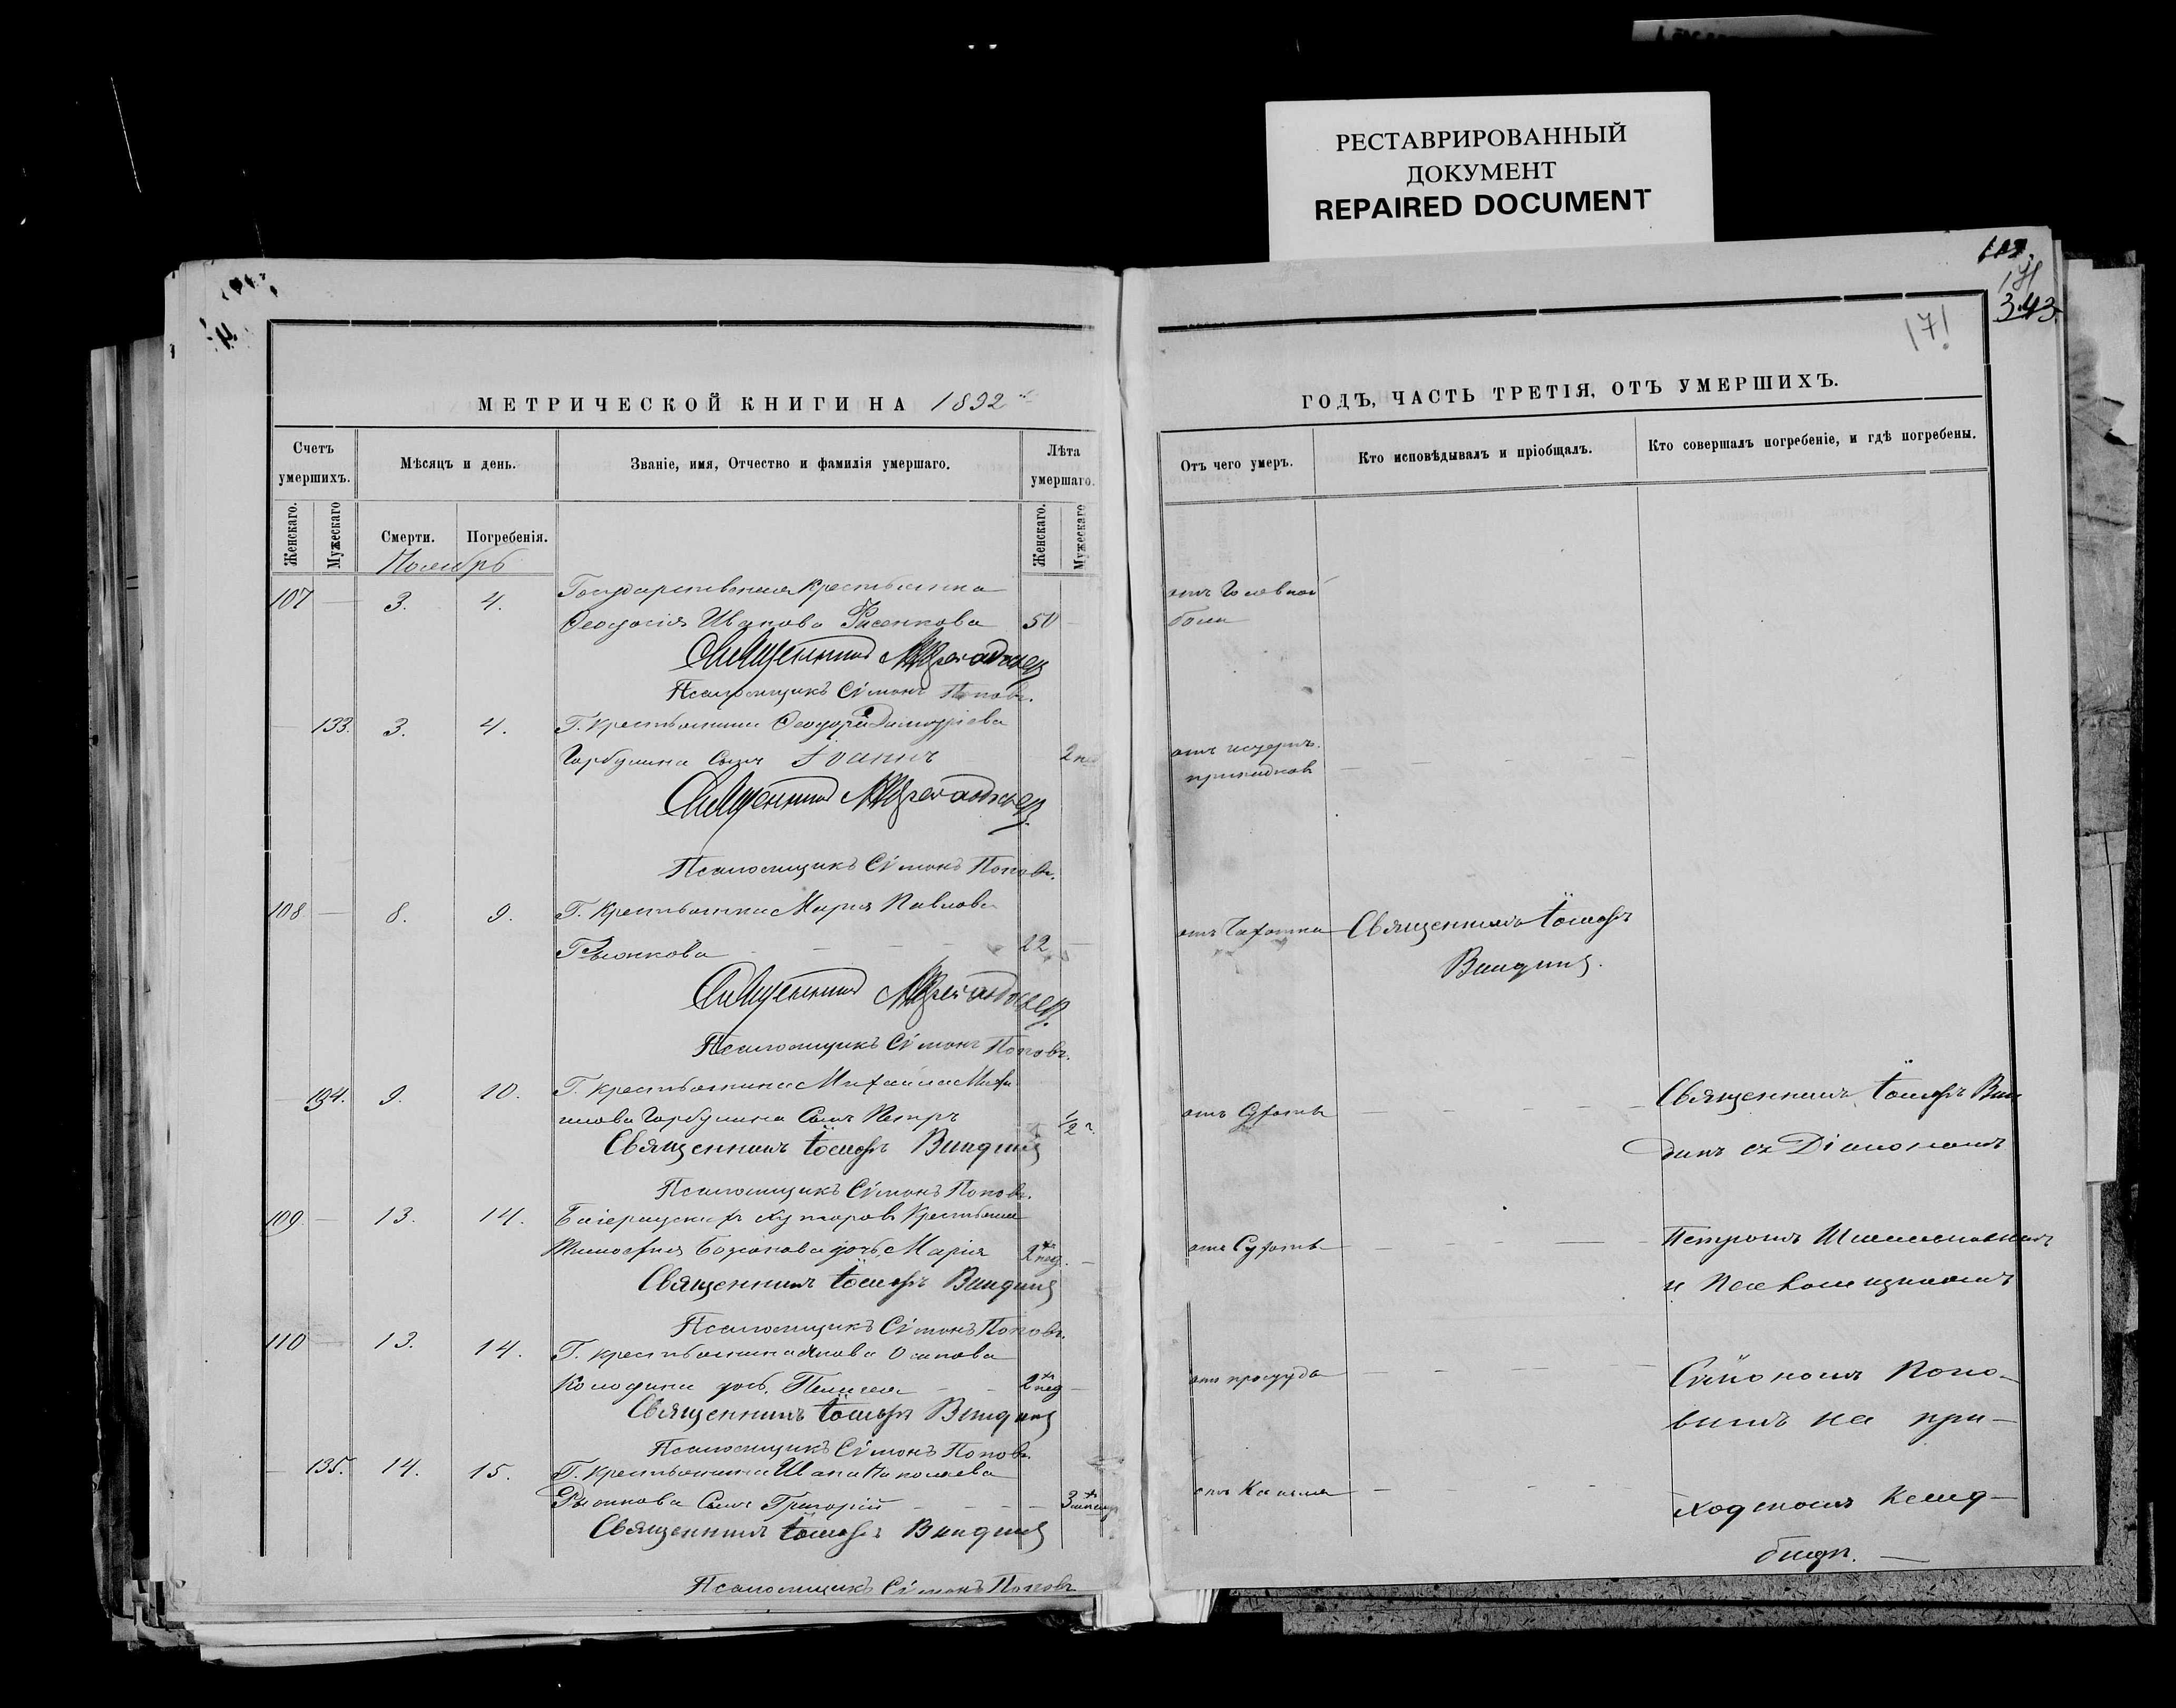 РЕСТАВРИРОВАННЫЙ
ДОКУМЕНТ
REPAIRED DOCUMENT
171
343.
171
МЕТРИЧЕСКОЙ КНИГИ НА 1892
ГОДЪ, ЧАСТЬ ТРЕТІЯ, ОТЪ УМЕРШИХЪ.
Счетъ умершихъ.
Мѣсяцъ и день.
Званіе, имя, Отчество и фамилія умершаго.
Лѣта умершаго.
Отъ чего умеръ.
Кто исповѣдывалъ и пріобщалъ.
Кто совершалъ погребеніе, и гдѣ погребены.
Женскаго.
Мужескаго
Смерти.
Погребенія.
Женскаго.
Мужескаго
Ноябрь
107 — 3. 4. Государственная крестьянка
Ѳеодосія Иванова 50 —
отъ головной
боли
Священникъ
Псаломщикъ Сѵмонъ Поповъ.
— 133. 3. 4. Г. крестьянина Ѳеодора Димитріева
Горбулина сынъ Іоаннъ 2 нед
отъ
припадковъ
Священникъ
Псаломщикъ Сѵмонъ Поповъ.
108 — 8. 9. Г. Крестьянка Марія Павлова
22 —
отъ Чахотки Священникъ Іосифъ
Виндингъ.
Священникъ
Псаломщикъ Сѵмонъ Поповъ.
— 134. 9. 10. Г. крестьянина Михаила Михаи
лова Горбулина сынъ Петръ 1/2 г.
отъ Сухоты
Священникъ Іосифъ Вин
Священникъ Іосифъ Виндингъ
динъ съ Діакономъ
Псаломщикъ Сѵмонъ Поповъ.
109 — 13. 14. хуторовъ Крестьян
Тимофея дочь Марія 2 нед. —
отъ Сухоты
Петромъ
Священникъ Іосифъ Виндингъ
и Псаломщикомъ
Псаломщикъ Сѵмонъ Поповъ.
110 — 13. 14. Г. крестьянина Якова Осипова
Колодина дочь 2 нед —
отъ простуды
Сѵмономъ Попо-
Священникъ Іосифъ Виндингъ
вымъ на при-
Псаломщикъ Сѵмонъ Поповъ.
— 135. 14. 15. Г. крестьянина Ивана Николаева
сынъ Григорій 3
отъ Кашля
ходскомъ клад-
Священникъ Іосифъ Виндингъ
бищѣ. —
Псаломщикъ Сѵмонъ Поповъ